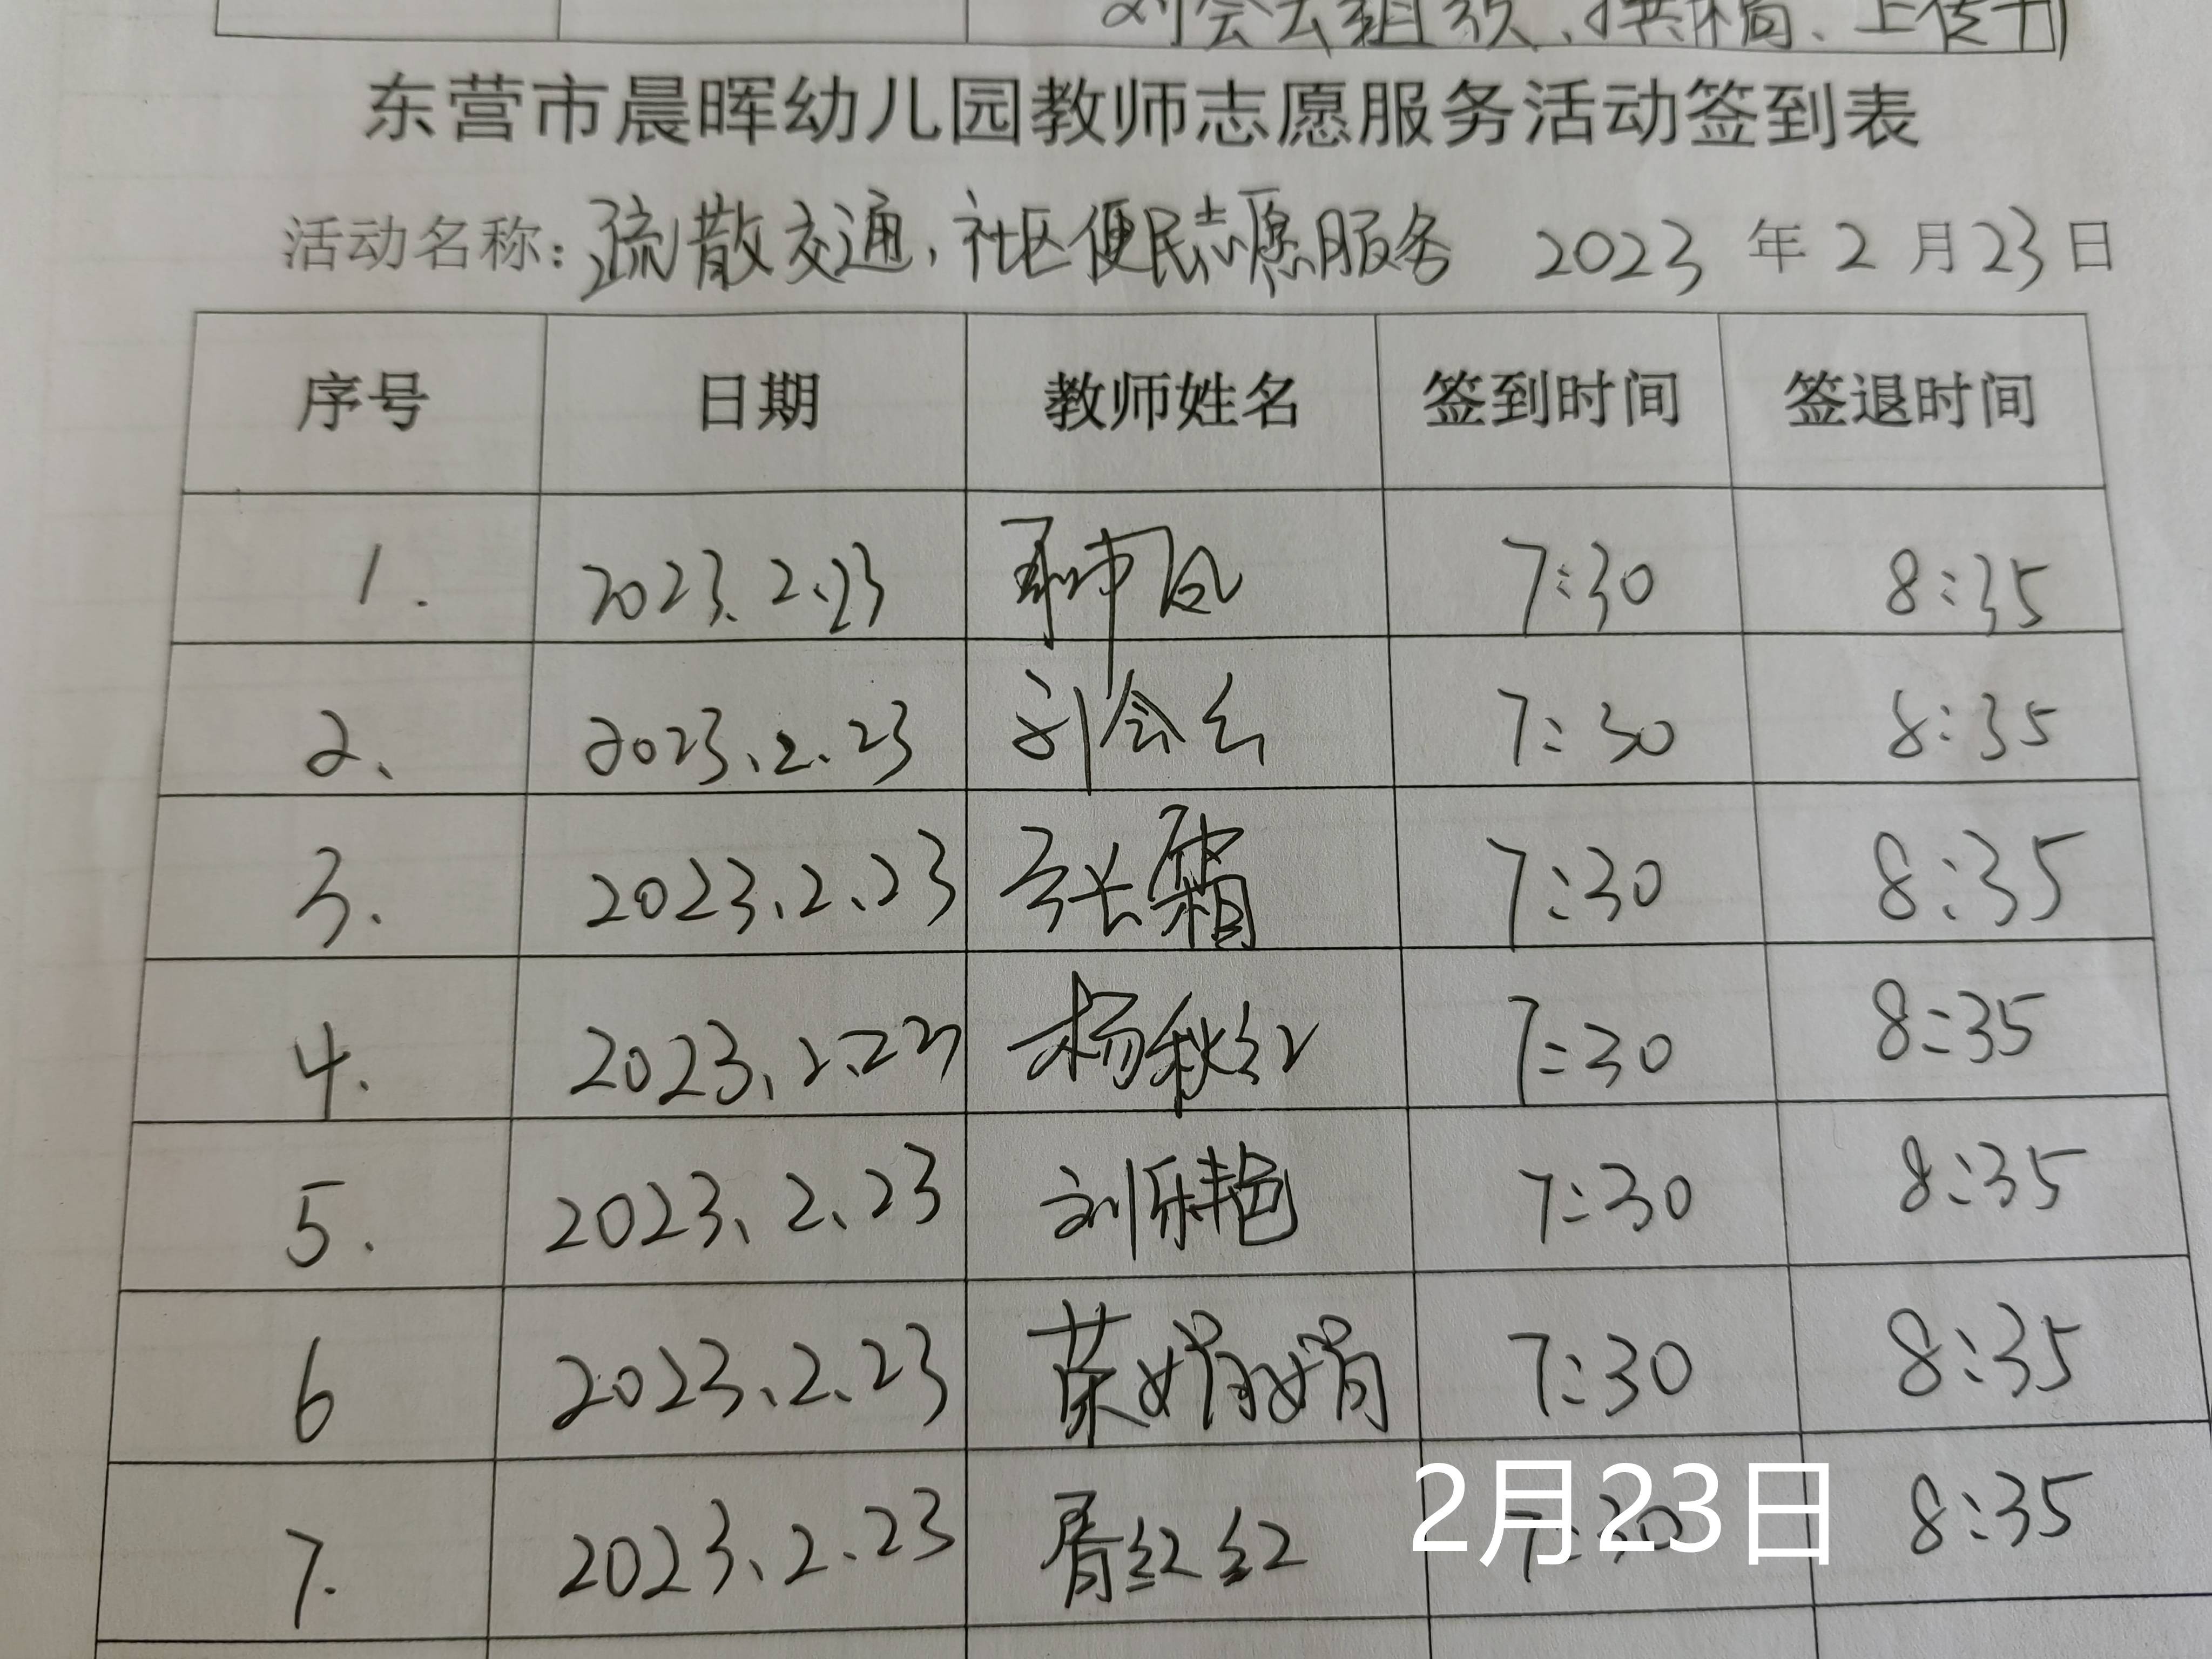 刘会云组织、供稿、上传刊
东营市晨晖幼儿园教师志愿服务活动签到表
活动名称：疏散交通，社区便民志愿服务 2023 年 2 月 23 日
序号 日期 教师姓名 签到时间 签退时间
1. 2023.2.23 7:30 8:35
2、 2023.2.23 刘会云 7:30 8:35
3. 2023.2.23 张霜 7:30 8:35
4. 2023.2.23 杨秋红 7:30 8:35
5. 2023.2.23 刘乐艳 7:30 8:35
6 2023.2.23 蔡娟娟 7:30 8:35
7. 2023.2.23 胥红红 7:30 8:35
2月23日